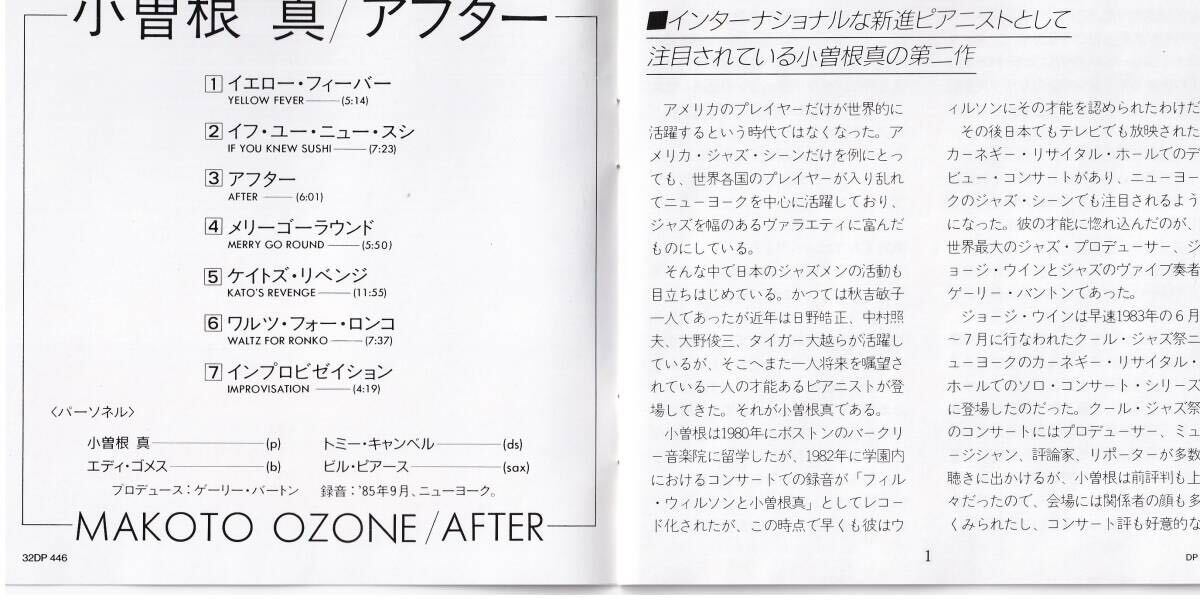 小曽根 真/アフター
1 イエロー・フィーバー
YELLOW FEVER (5:14)
2 イフ・ユー・ニュー・スシ
IF YOU KNEW SUSHI (7:23)
3 アフター
AFTER (6:01)
4 メリーゴーラウンド
MERRY GO ROUND (5:50)
5 ケイトズ・リベンジ
KATO'S REVENGE (11:55)
6 ワルツ・フォー・ロンコ
WALTZ FOR RONKO (7:37)
7 インプロビゼイション
IMPROVISATION (4:19)
〈パーソネル〉
小曽根 真 (p) トミー・キャンベル (ds)
エディ・ゴメス (b) ビル・ピアース (sax)
プロデュース:ゲーリー・バートン 録音:'85年9月、ニューヨーク。
MAKOTO OZONE/AFTER
32DP 446
■インターナショナルな新進ピアニストとして
注目されている小曽根真の第二作
アメリカのプレイヤーだけが世界的に
活躍するという時代ではなくなった。ア
メリカ・ジャズ・シーンだけを例にとっ
ても、世界各国のプレイヤーが入り乱れ
てニューヨークを中心に活躍しており、
ジャズを幅のあるヴァラエティに富んだ
ものにしている。
そんな中で日本のジャズメンの活動も
目立ちはじめている。かつては秋吉敏子
一人であったが近年は日野皓正、中村照
夫、大野俊三、タイガー大越らが活躍し
ているが、そこへまた一人将来を嘱望さ
れている一人の才能あるピアニストが登
場してきた。それが小曽根真である。
小曽根は1980年にボストンのバークリ
ー音楽院に留学したが、1982年に学園内
におけるコンサートでの録音が「フィル
・ウィルソンと小曽根真」としてレコー
ド化されたが、この時点で早くも彼はウ
ィルソンにその才能を認められたわけだ
その後日本でもテレビでも放映された
カーネギー・リサイタル・ホールでのデ
ビュー・コンサートがあり、ニューヨー
クのジャズ・シーンでも注目されるよう
になった。彼の才能に惚れ込んだのが、
世界最大のジャズ・プロデューサー、ジ
ョージ・ウインとジャズのヴァイブ奏者
ゲーリー・バントンであった。
ジョージ・ウインは早速1983年の6月
〜7月に行なわれたクール・ジャズ祭ニ
ューヨークのカーネギー・リサイタル・
ホールでのソロ・コンサート・シリーズ
に登場したのだった。クール・ジャズ祭
のコンサートにはプロデューサー、ミュ
ージシャン、評論家、リポーターが多数
聴きに出かけるが、小曽根は前評判も上
々だったので、会場には関係者の顔も多
くみられたし、コンサート評も好意的な
1
DP